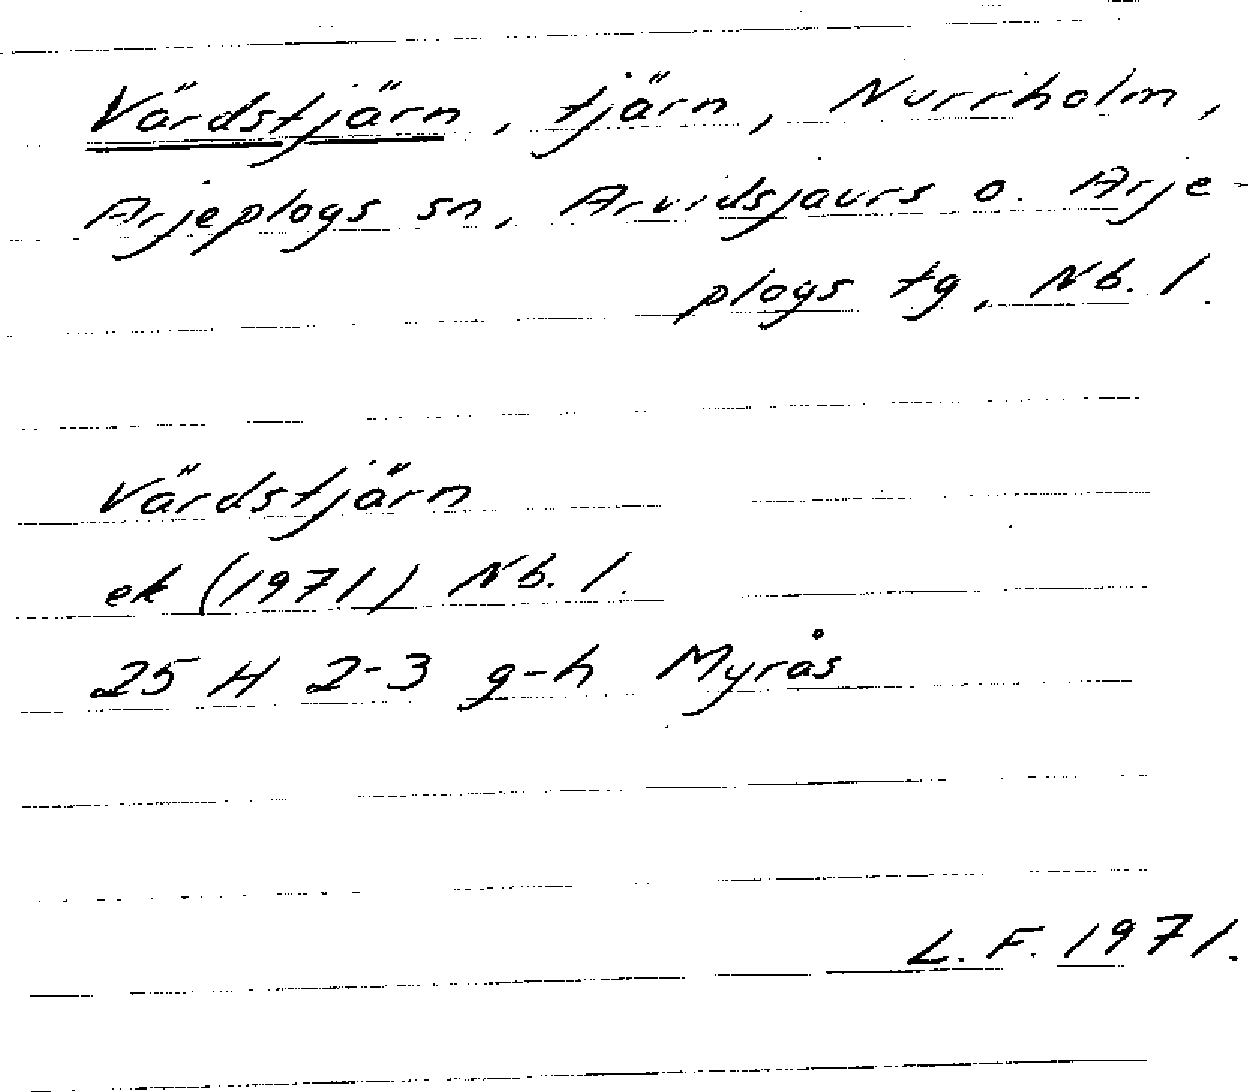 Värdstjärn, tjärn, Nurrholm,
Arjeplogs sn, Arvidsjaurs o. Arje-
plogs tg, Nb. l.
Värdstjärn
ek (1971) Nb. l.
25 H 2-3 g-h Myrås
L. F. 1971.